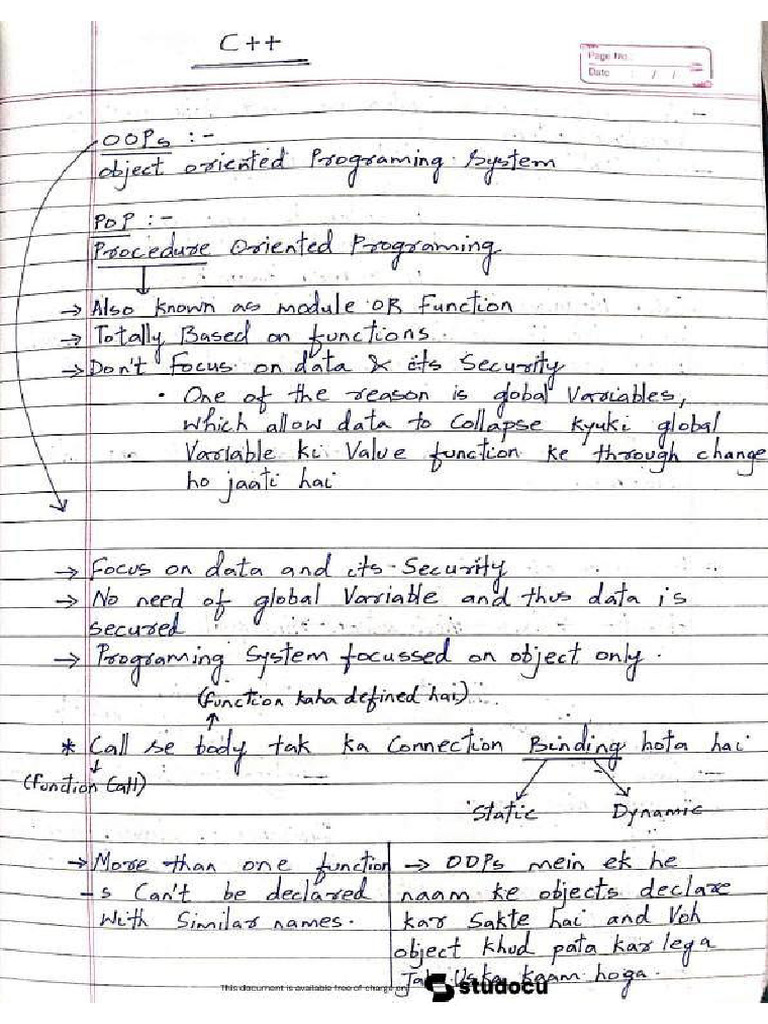 C++
Page No.
Date : / /
OOPs :-
object oriented Programing System
POP :-
Procedure Oriented Programing
→ Also known as module OR Function
→ Totally Based on functions.
→ Don't Focus on data & its Security
• One of the reason is global Variables,
which allow data to Collapse kyuki global
Variable ki Value function ke through change
ho jaati hai
→ Focus on data and its Security
→ No need of global Variable and thus data is
secured
→ Programing System focussed on object only.
(function kaha defined hai)
* Call se body tak ka Connection Binding hota hai
(function Call)
Static Dynamic
→ More than one function
-s Can't be declared
With Similar names.
→ OOPs mein ek he
naam ke objects declare
kar Sakte hai and Voh
object khud pata kar lega
Uska kaam hoga.
This document is available free of charge on studocu